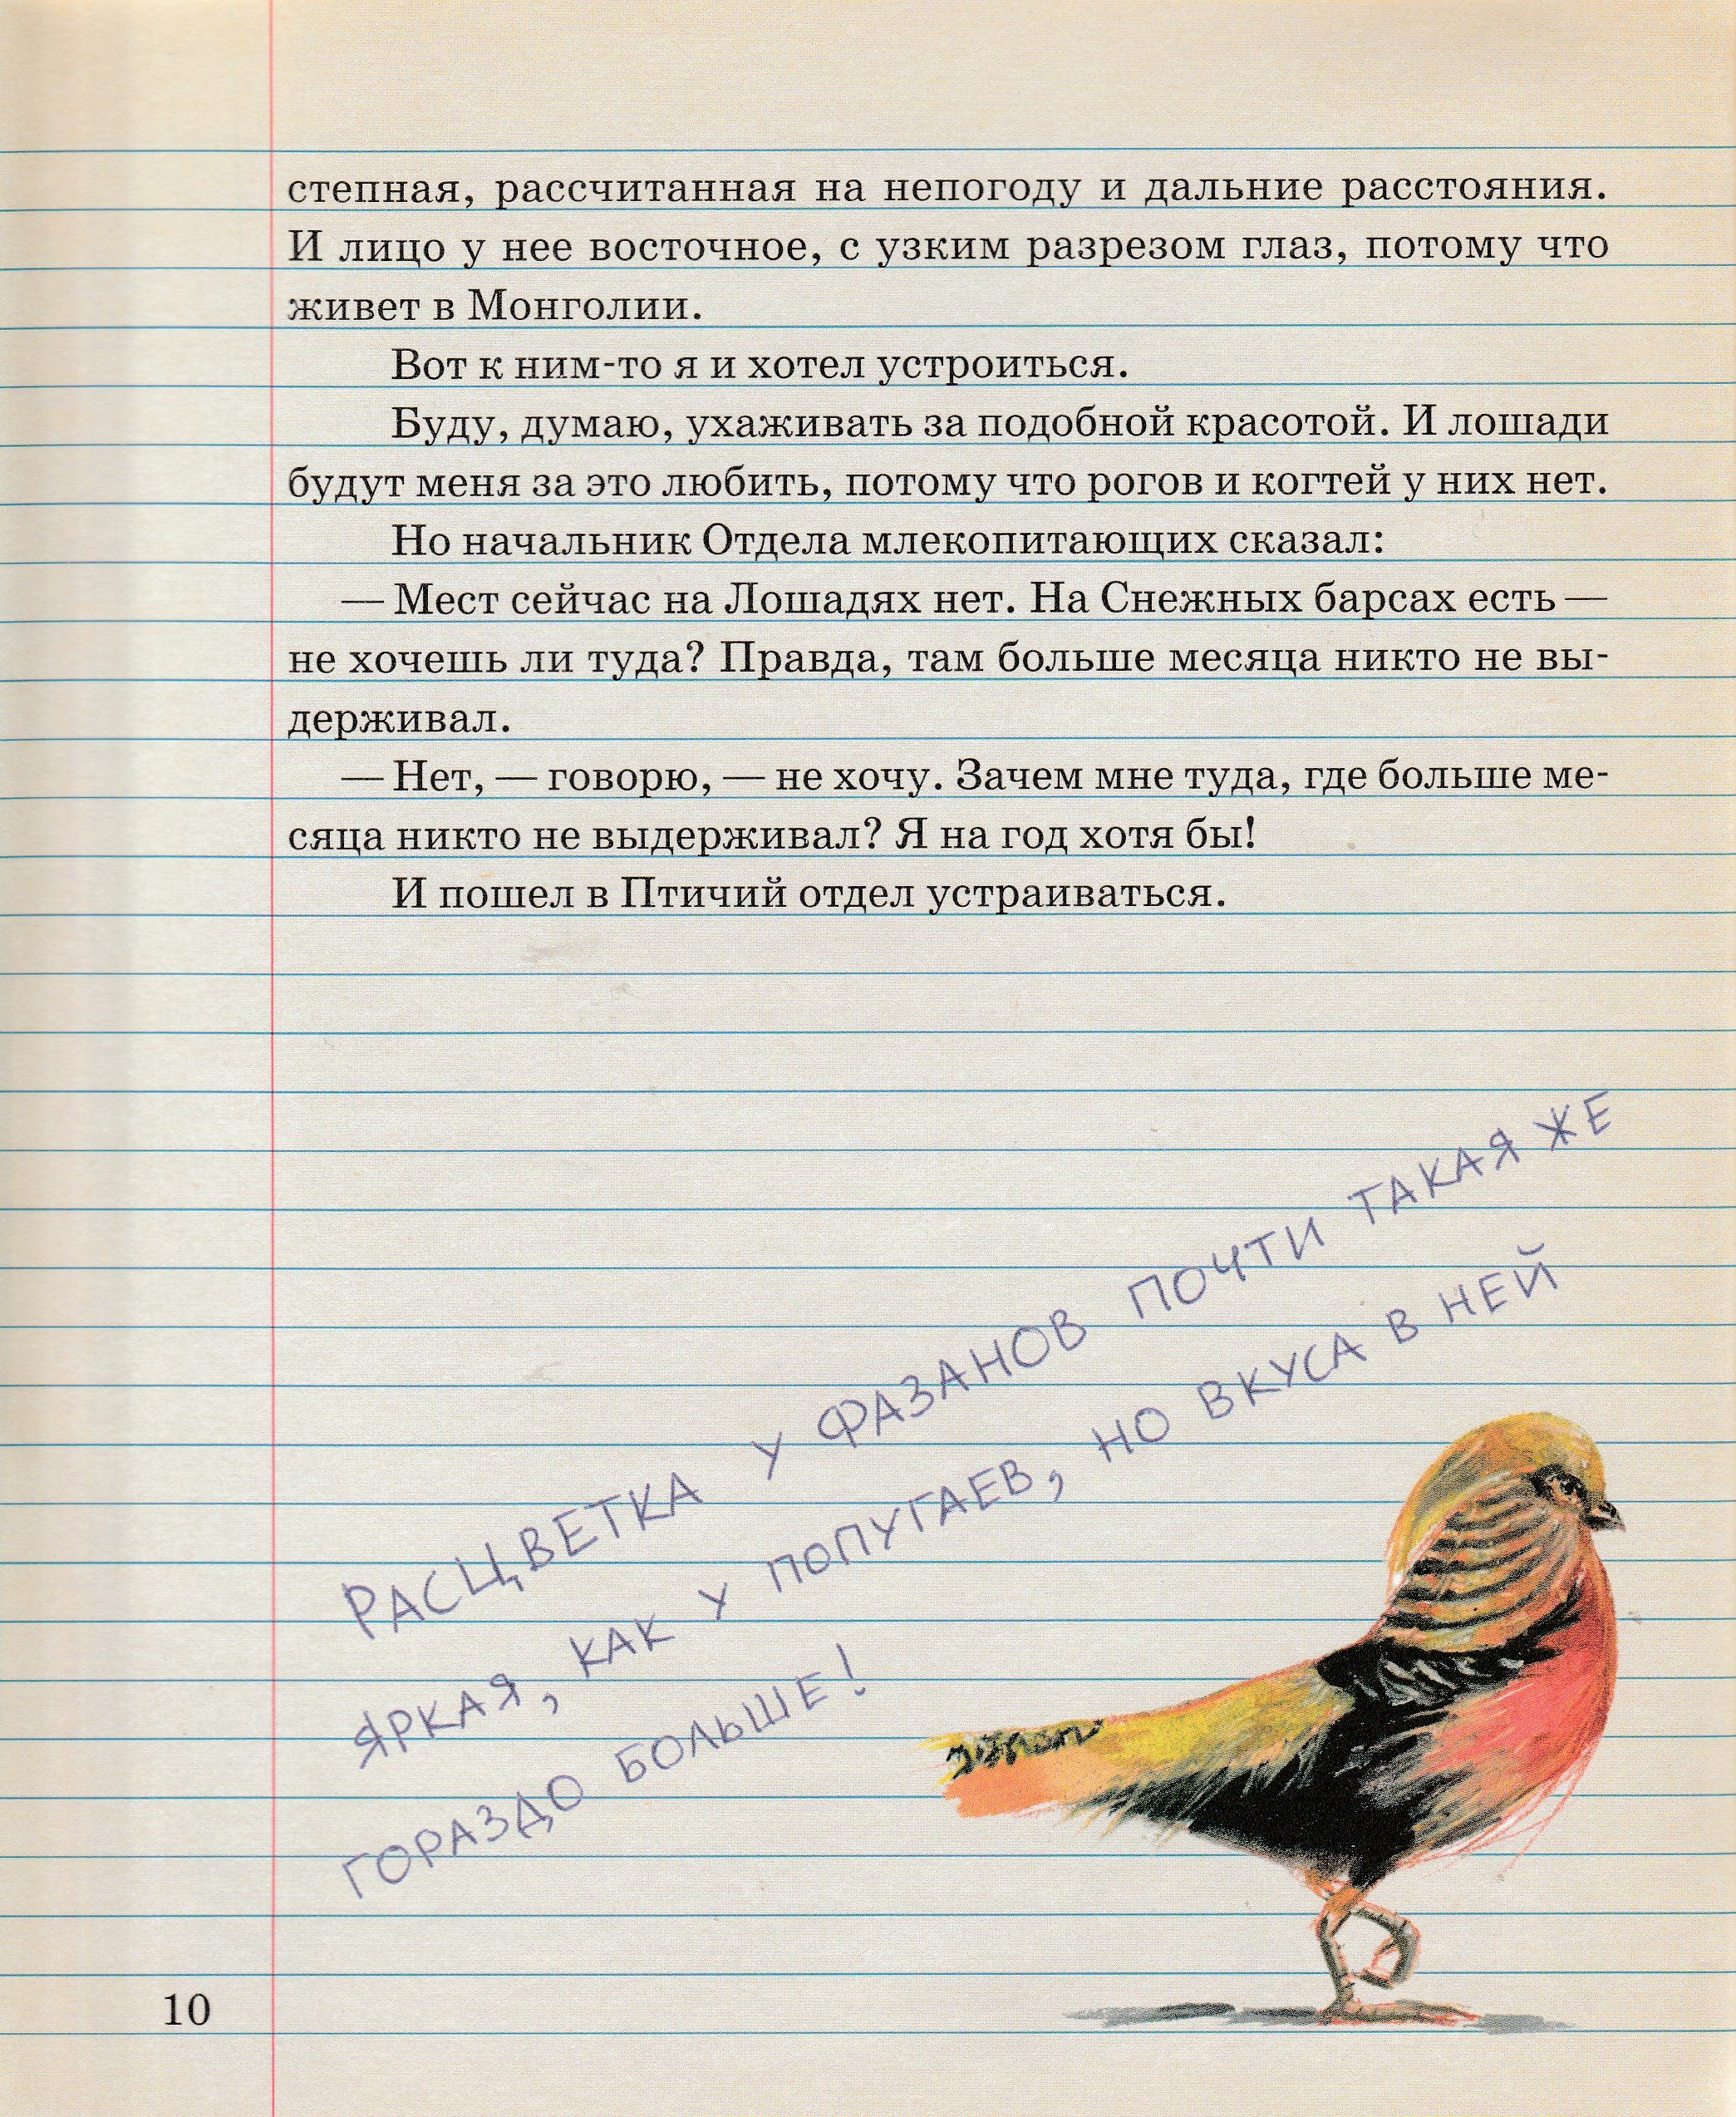 степная, рассчитанная на непогоду и дальние расстояния.
И лицо у нее восточное, с узким разрезом глаз, потому что
живет в Монголии.
Вот к ним-то я и хотел устроиться.
Буду, думаю, ухаживать за подобной красотой. И лошади
будут меня за это любить, потому что рогов и когтей у них нет.
Но начальник Отдела млекопитающих сказал:
— Мест сейчас на Лошадях нет. На Снежных барсах есть —
не хочешь ли туда? Правда, там больше месяца никто не вы-
держивал.
— Нет, — говорю, — не хочу. Зачем мне туда, где больше ме-
сяца никто не выдерживал? Я на год хотя бы!
И пошел в Птичий отдел устраиваться.
РАСЦВЕТКА У ФАЗАНОВ ПОЧТИ ТАКАЯ ЖЕ
ЯРКАЯ, КАК У ПОПУГАЕВ, НО ВКУСА В НЕЙ
ГОРАЗДО БОЛЬШЕ!
10